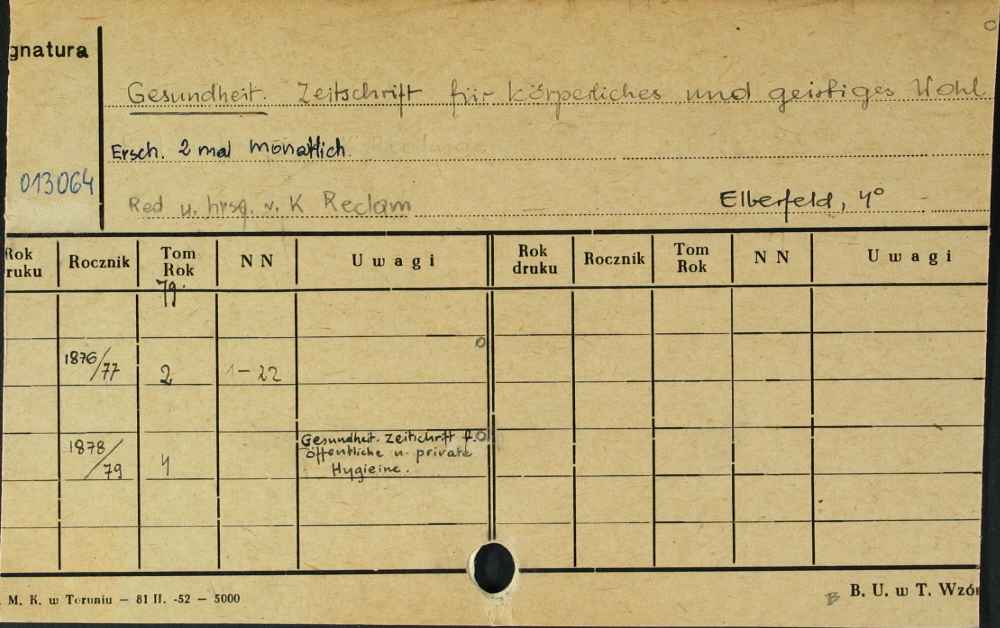 gnatura
Gesundheit. Zeitschrift für körperliches und geistiges Wohl
Ersch. 2 mal monatlich.
013064
Red u. hrsg. v. K Reclam Elberfeld, 4°
Rok druku Rocznik Tom Rok NN Uwagi Rok druku Rocznik Tom Rok NN Uwagi
79.
1876/77 2 1-22
1878/79 4 Gesundheit. Zeitschrift f.
öffentliche u. private
Hygieine.
M. K. w Toruniu — 81 II. -52 — 5000
B B. U. w T. Wzór